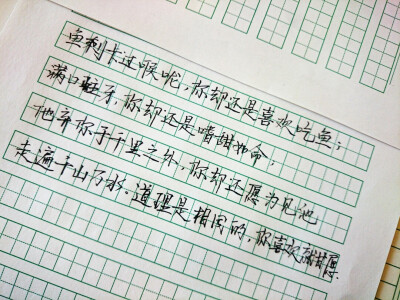 鱼刺卡过喉咙，你却还是喜欢吃鱼；
满口蛀牙，你却还是嗜甜如命；
他弃你于千里之外，你却还愿为见他
走遍千山万水。道理是相同的，你喜欢就甘愿.